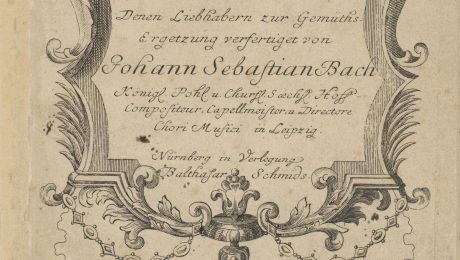 Denen Liebhabern zur Gemüths-
Ergetzung verfertiget von
Johann Sebastian Bach
Königl. Pohl. u. Churfl. Sæchs. Hoff-
Compositeur, Capellmeister, u. Directore
Chori Musici in Leipzig.
Nürnberg in Verlegung
Balthasar Schmids